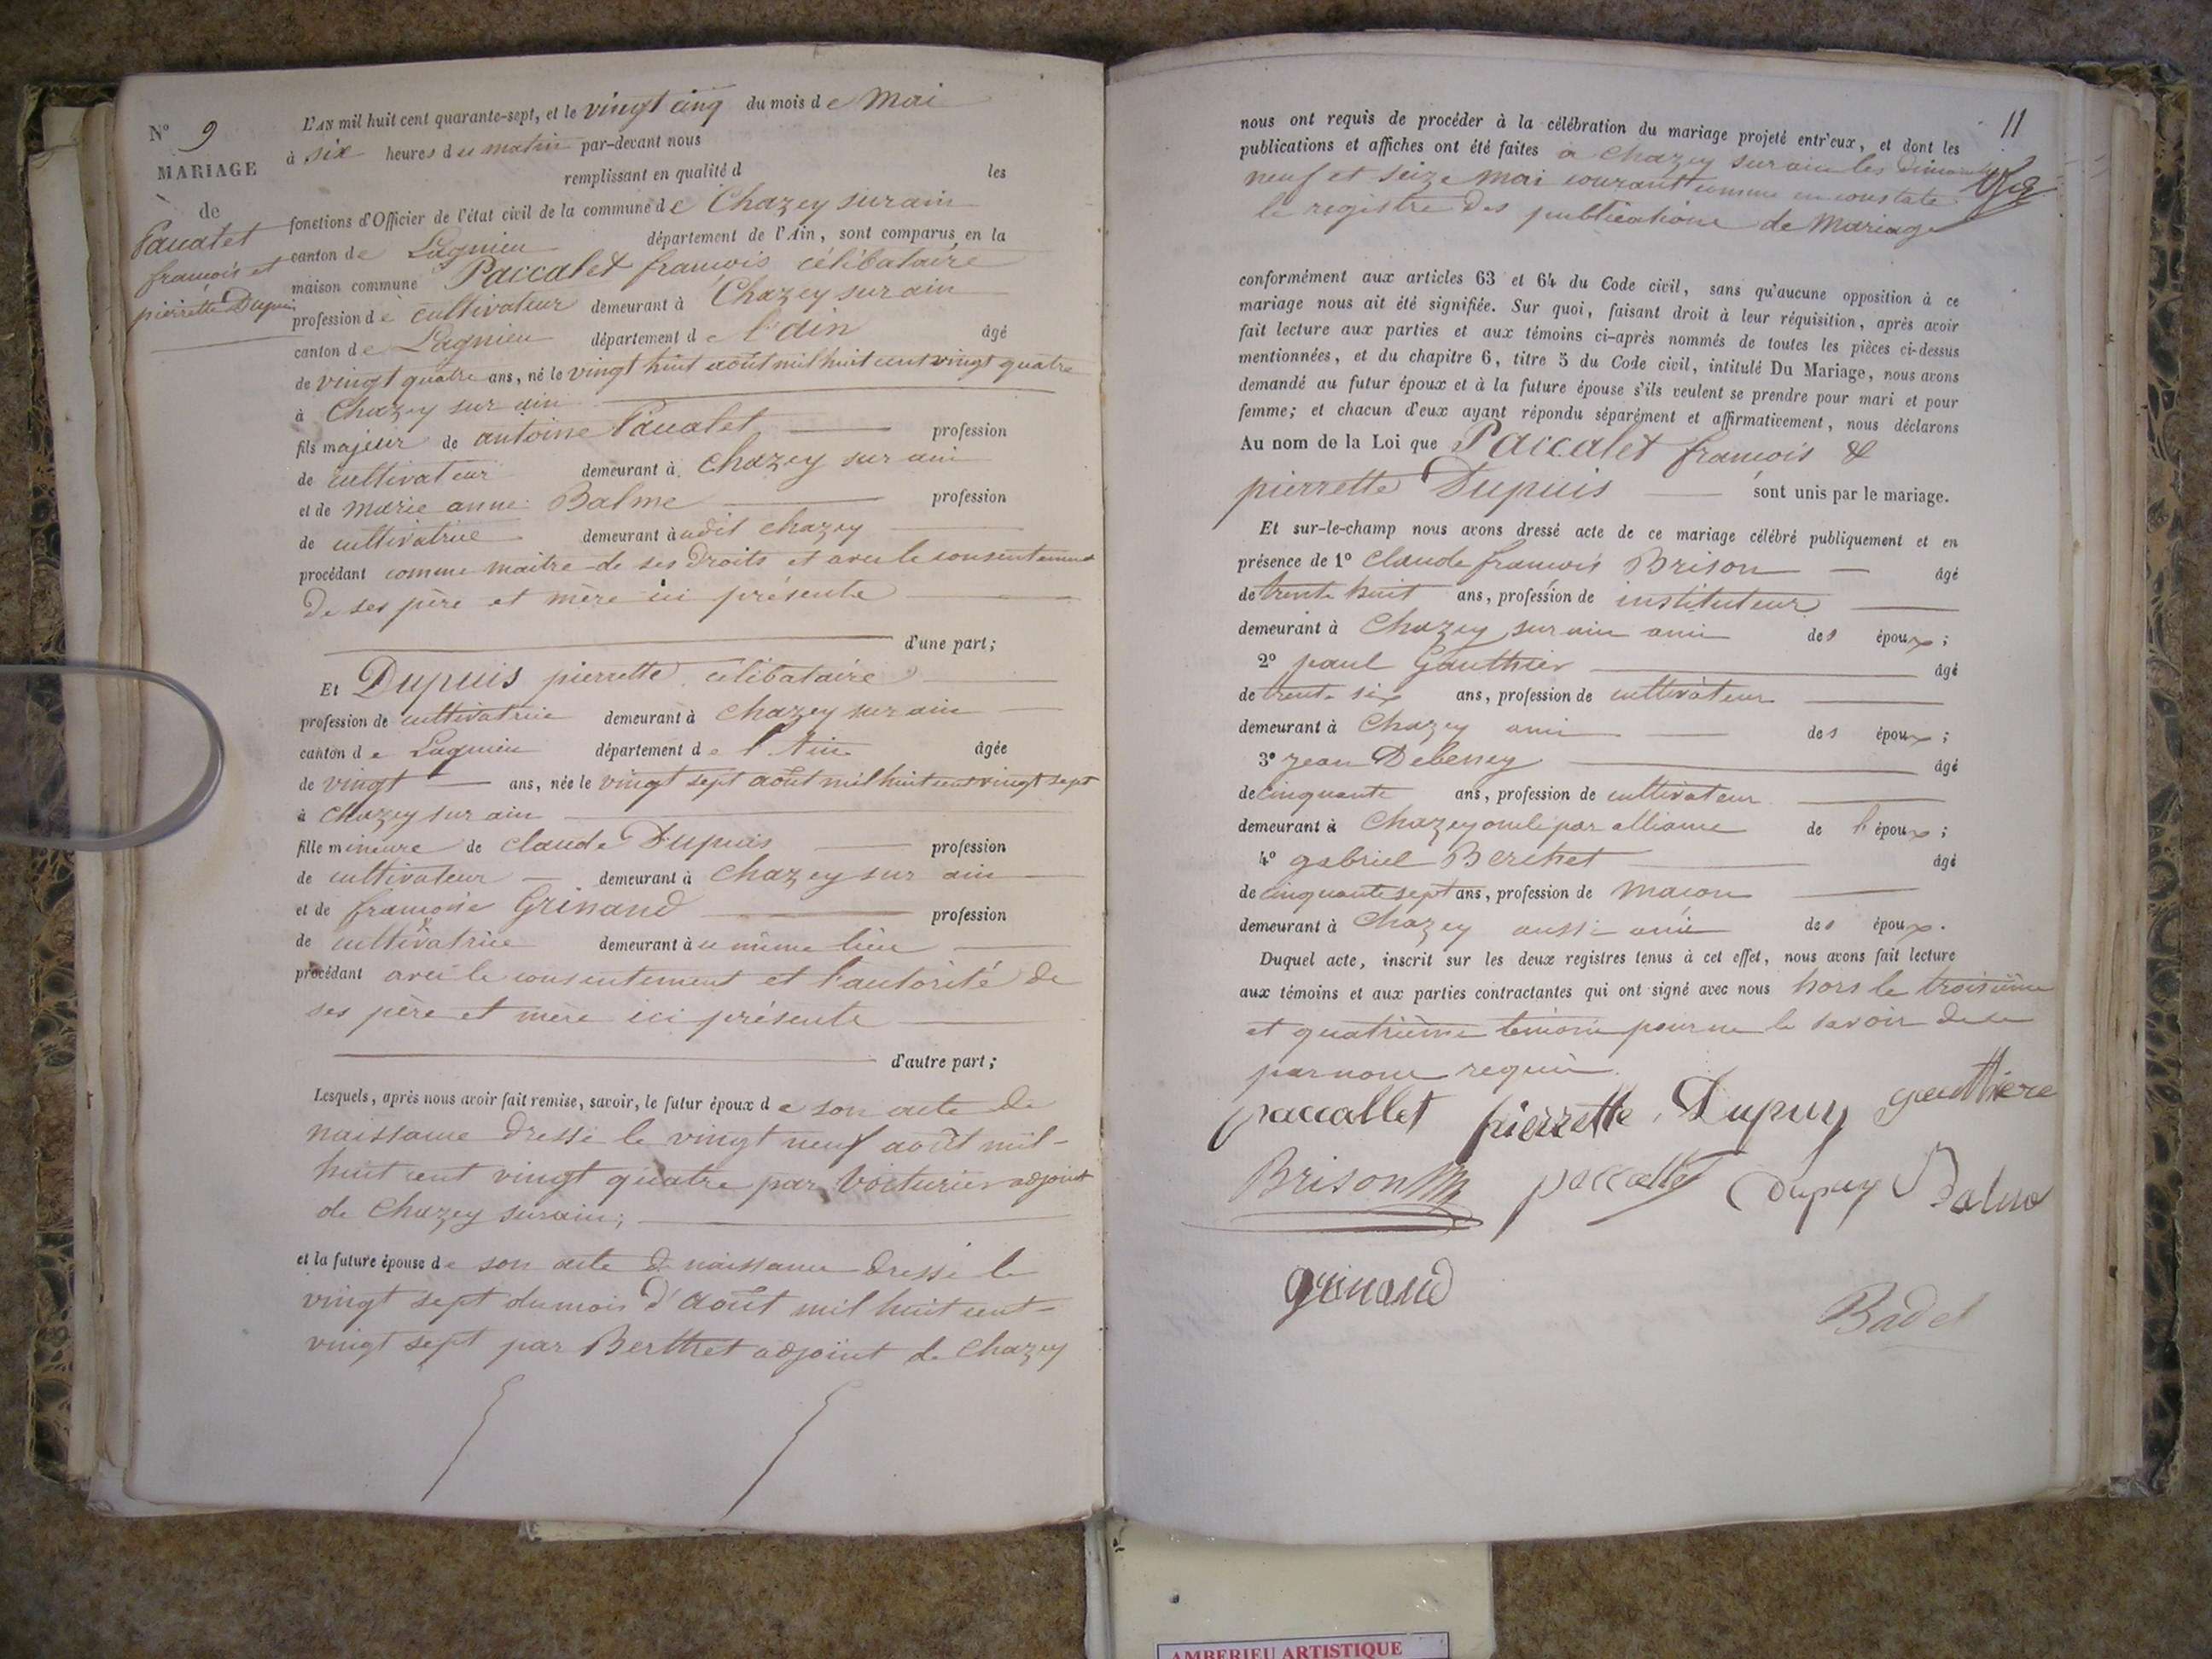 N° 9
MARIAGE
de
Paccalet
françois et
pierrette Dupuis
L'AN mil huit cent quarante-sept, et le vingt cinq du mois de Mai
à six heures du matin par-devant nous
remplissant en qualité d les
fonctions d'Officier de l'état civil de la commune de Chazey sur ain
canton de Lagnieu département de l'Ain, sont comparus en la
maison commune Paccalet françois célibataire
profession de cultivateur demeurant à Chazey sur ain
canton de Lagnieu département de l'ain âgé
de vingt quatre ans, né le vingt huit août mil huit cent vingt quatre
à Chazey sur ain
fils majeur de antoine Paccalet profession
de cultivateur demeurant à Chazey sur ain
et de marie anne Balme profession
de cultivatrice demeurant à udit chazey
procédant comme maitre de ses droits et avec le consentement
de ses père et mère ici présents
d'une part;
Et Dupuis pierrette célibataire
profession de cultivatrice demeurant à Chazey sur ain
canton de Lagnieu département de l'Ain âgée
de vingt ans, née le vingt sept août mil huit cent vingt sept
à Chazey sur ain
fille mineure de claude Dupuis profession
de cultivateur demeurant à Chazey sur ain
et de françoise Grinand profession
de cultivatrice demeurant à u même lieu
procédant avec le consentement et l'autorité de
ses père et mère ici présents
d'autre part;
Lesquels, après nous avoir fait remise, savoir, le futur époux de son acte de
naissance dressé le vingt neuf août mil-
huit cent vingt quatre par Voiturier adjoint
de Chazey sur ain;
et la future épouse de son acte de naissance dressé le
vingt sept du mois d'août mil huit cent-
vingt sept par Berthet adjoint de Chazey
11
nous ont requis de procéder à la célébration du mariage projeté entr'eux, et dont les
publications et affiches ont été faites à Chazey sur ain les dimanches
neuf et seize mai courant comme en constate
le registre des publications de Mariage
conformément aux articles 63 et 64 du Code civil, sans qu'aucune opposition à ce
mariage nous ait été signifiée. Sur quoi, faisant droit à leur réquisition, après avoir
fait lecture aux parties et aux témoins ci-après nommés de toutes les pièces ci-dessus
mentionnées, et du chapitre 6, titre 5 du Code civil, intitulé Du Mariage, nous avons
demandé au futur époux et à la future épouse s'ils veulent se prendre pour mari et pour
femme; et chacun d'eux ayant répondu séparément et affirmativement, nous déclarons
Au nom de la Loi que Paccalet françois &
pierrette Dupuis sont unis par le mariage.
Et sur-le-champ nous avons dressé acte de ce mariage célébré publiquement et en
présence de 1° Claude françois Brison âgé
de trente huit ans, profession de instituteur
demeurant à Chazey sur ain ami des époux;
2° paul Gauthier âgé
de trente six ans, profession de cultivateur
demeurant à Chazey ami des époux;
3° jean Debeney âgé
de cinquante ans, profession de cultivateur
demeurant à Chazey oncle par alliance de l'époux;
4° gabriel Berthet âgé
de cinquante sept ans, profession de macon
demeurant à Chazey aussi ami des époux.
Duquel acte, inscrit sur les deux registres tenus à cet effet, nous avons fait lecture
aux témoins et aux parties contractantes qui ont signé avec nous hors le troisième
et quatrième témoins pour ne le savoir de ce
par nous requis
paccallet pierrette Dupuy gauthiere
Brison paccallet Dupuy Balme
grinand
Badet
AMBERIEU ARTISTIQUE